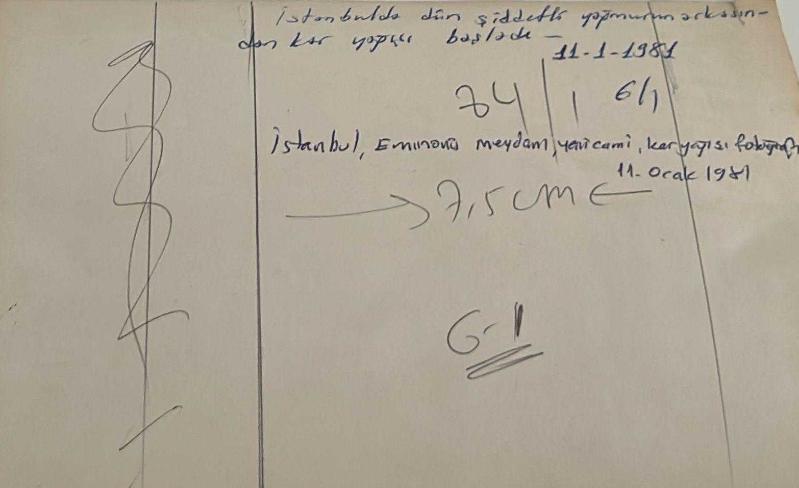 İstanbulda dün şiddetli yağmurun arkasın-
dan kar yağışı başladı -
11-1-1981
84 | 1 6/1
İstanbul, Eminönü meydanı, yenicami, kar yağışı fotoğrafı
11. Ocak 1981
7,5 cm
G-1